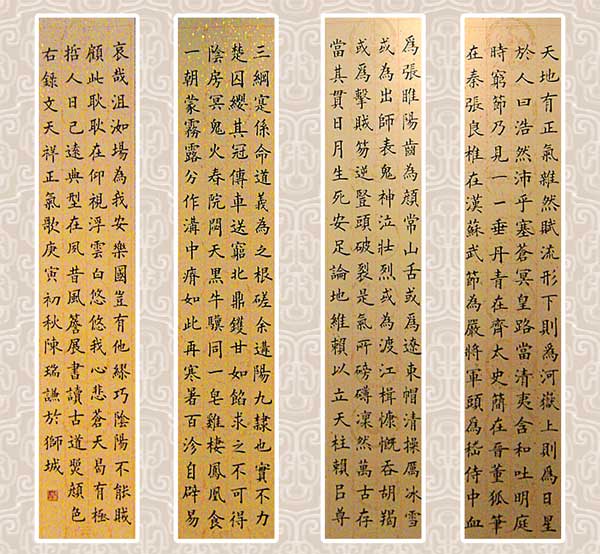 天地有正氣雜然賦流形下則爲河嶽上則爲日星
於人曰浩然沛乎塞蒼冥皇路當清夷含和吐明庭
時窮節乃見一一垂丹青在齊太史簡在晉董狐筆
在秦張良椎在漢蘇武節爲嚴將軍頭爲嵇侍中血
爲張睢陽齒爲顏常山舌或爲遼東帽清操厲冰雪
或爲出師表鬼神泣壯烈或爲渡江楫慷慨吞胡羯
或爲擊賊笏逆豎頭破裂是氣所磅礴凜然萬古存
當其貫日月生死安足論地維賴以立天柱賴㠯尊
三綱寔係命道義為之根磋余遘陽九隸也實不力
楚囚纓其冠傳車送窮北鼎鑊甘如飴求之不可得
陰房冥鬼火春院閟天黑牛驥同一皂雞棲鳳凰食
一朝蒙霧露分作溝中瘠如此再寒暑百沴自辟易
哀哉沮洳場為我安樂國豈有他繆巧陰陽不能賊
顧此耿耿在仰視浮雲白悠悠我心悲蒼天曷有極
哲人日已遠典型在夙昔風簷展書讀古道照顏色
右錄文天祥正氣歌庚寅初秋陳瑞謙於獅城